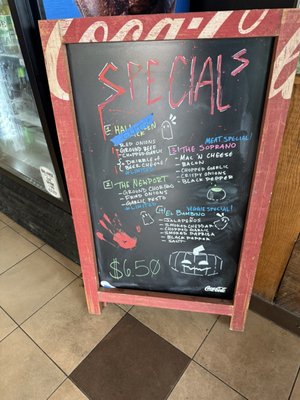 Coca-Cola
SPECIALS
HALLOWEEN
RED ONIONS
GROUND BEEF
CHOPPED GARLIC
BEER CHEESE
THE NEWPORT
GROUND CHORIZO
FRIED ONIONS
GARLIC PESTO
MEAT SPECIAL!
THE SOPRANO
- MAC 'N CHEESE
- BACON
- CHOPPED GARLIC
- CRISPY ONIONS
- BLACK PEPPER
VEGGIE SPECIAL!
EL BAMBINO
- JALAPEÑOS
- SMOKED CHEDDAR
- CHOPPED GARLIC
- SMOKED PAPRIKA
- BLACK PEPPER
- SALT
$6.50
Coca-Cola